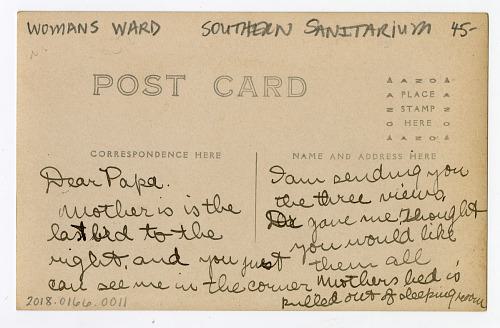 WOMANS WARD SOUTHERN SANITARIUM 45-
POST CARD
AZO
PLACE
STAMP
HERE
AZO
CORRESPONDENCE HERE
NAME AND ADDRESS HERE
Dear Papa.
Mother is is the
last bed to the
right, and you just
can see me in the corner
I am sending you
the three views,
Dr gave me. Thought
you would like
them all
Mothers bed is
pulled out of sleeping room
2018.0166.0011